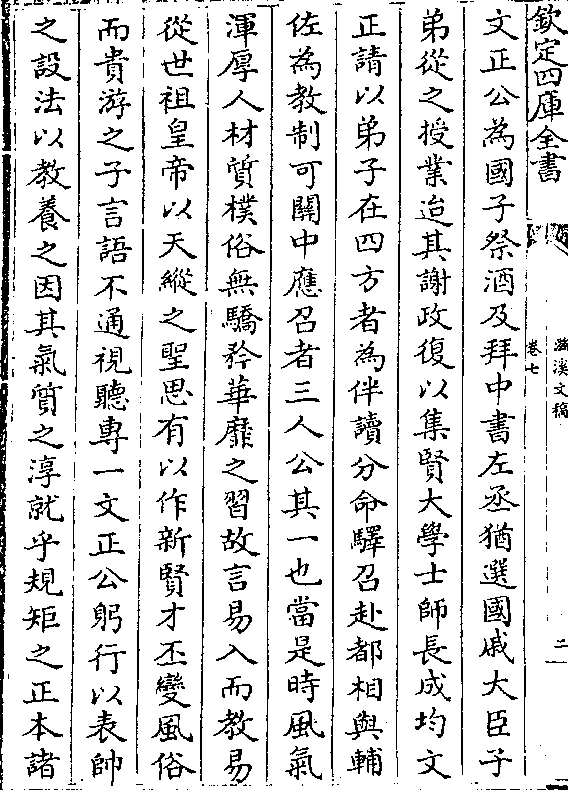 欽定四庫全書
滋溪文稿
卷七
二
文正公為國子祭酒及拜中書左丞猶選國戚大臣子
弟從之授業迨其謝政復以集賢大學士師長成均文
正請以弟子在四方者為伴讀分命驛召赴都相與輔
佐為教制可關中應召者三人公其一也當是時風氣
渾厚人材質樸俗無驕矜華靡之習故言易入而教易
從世祖皇帝以天縱之聖思有以作新賢才丕變風俗
而貴游之子言語不通視聽專一文正公躬行以表帥
之設法以教養之因其氣質之淳就乎規矩之正本諸